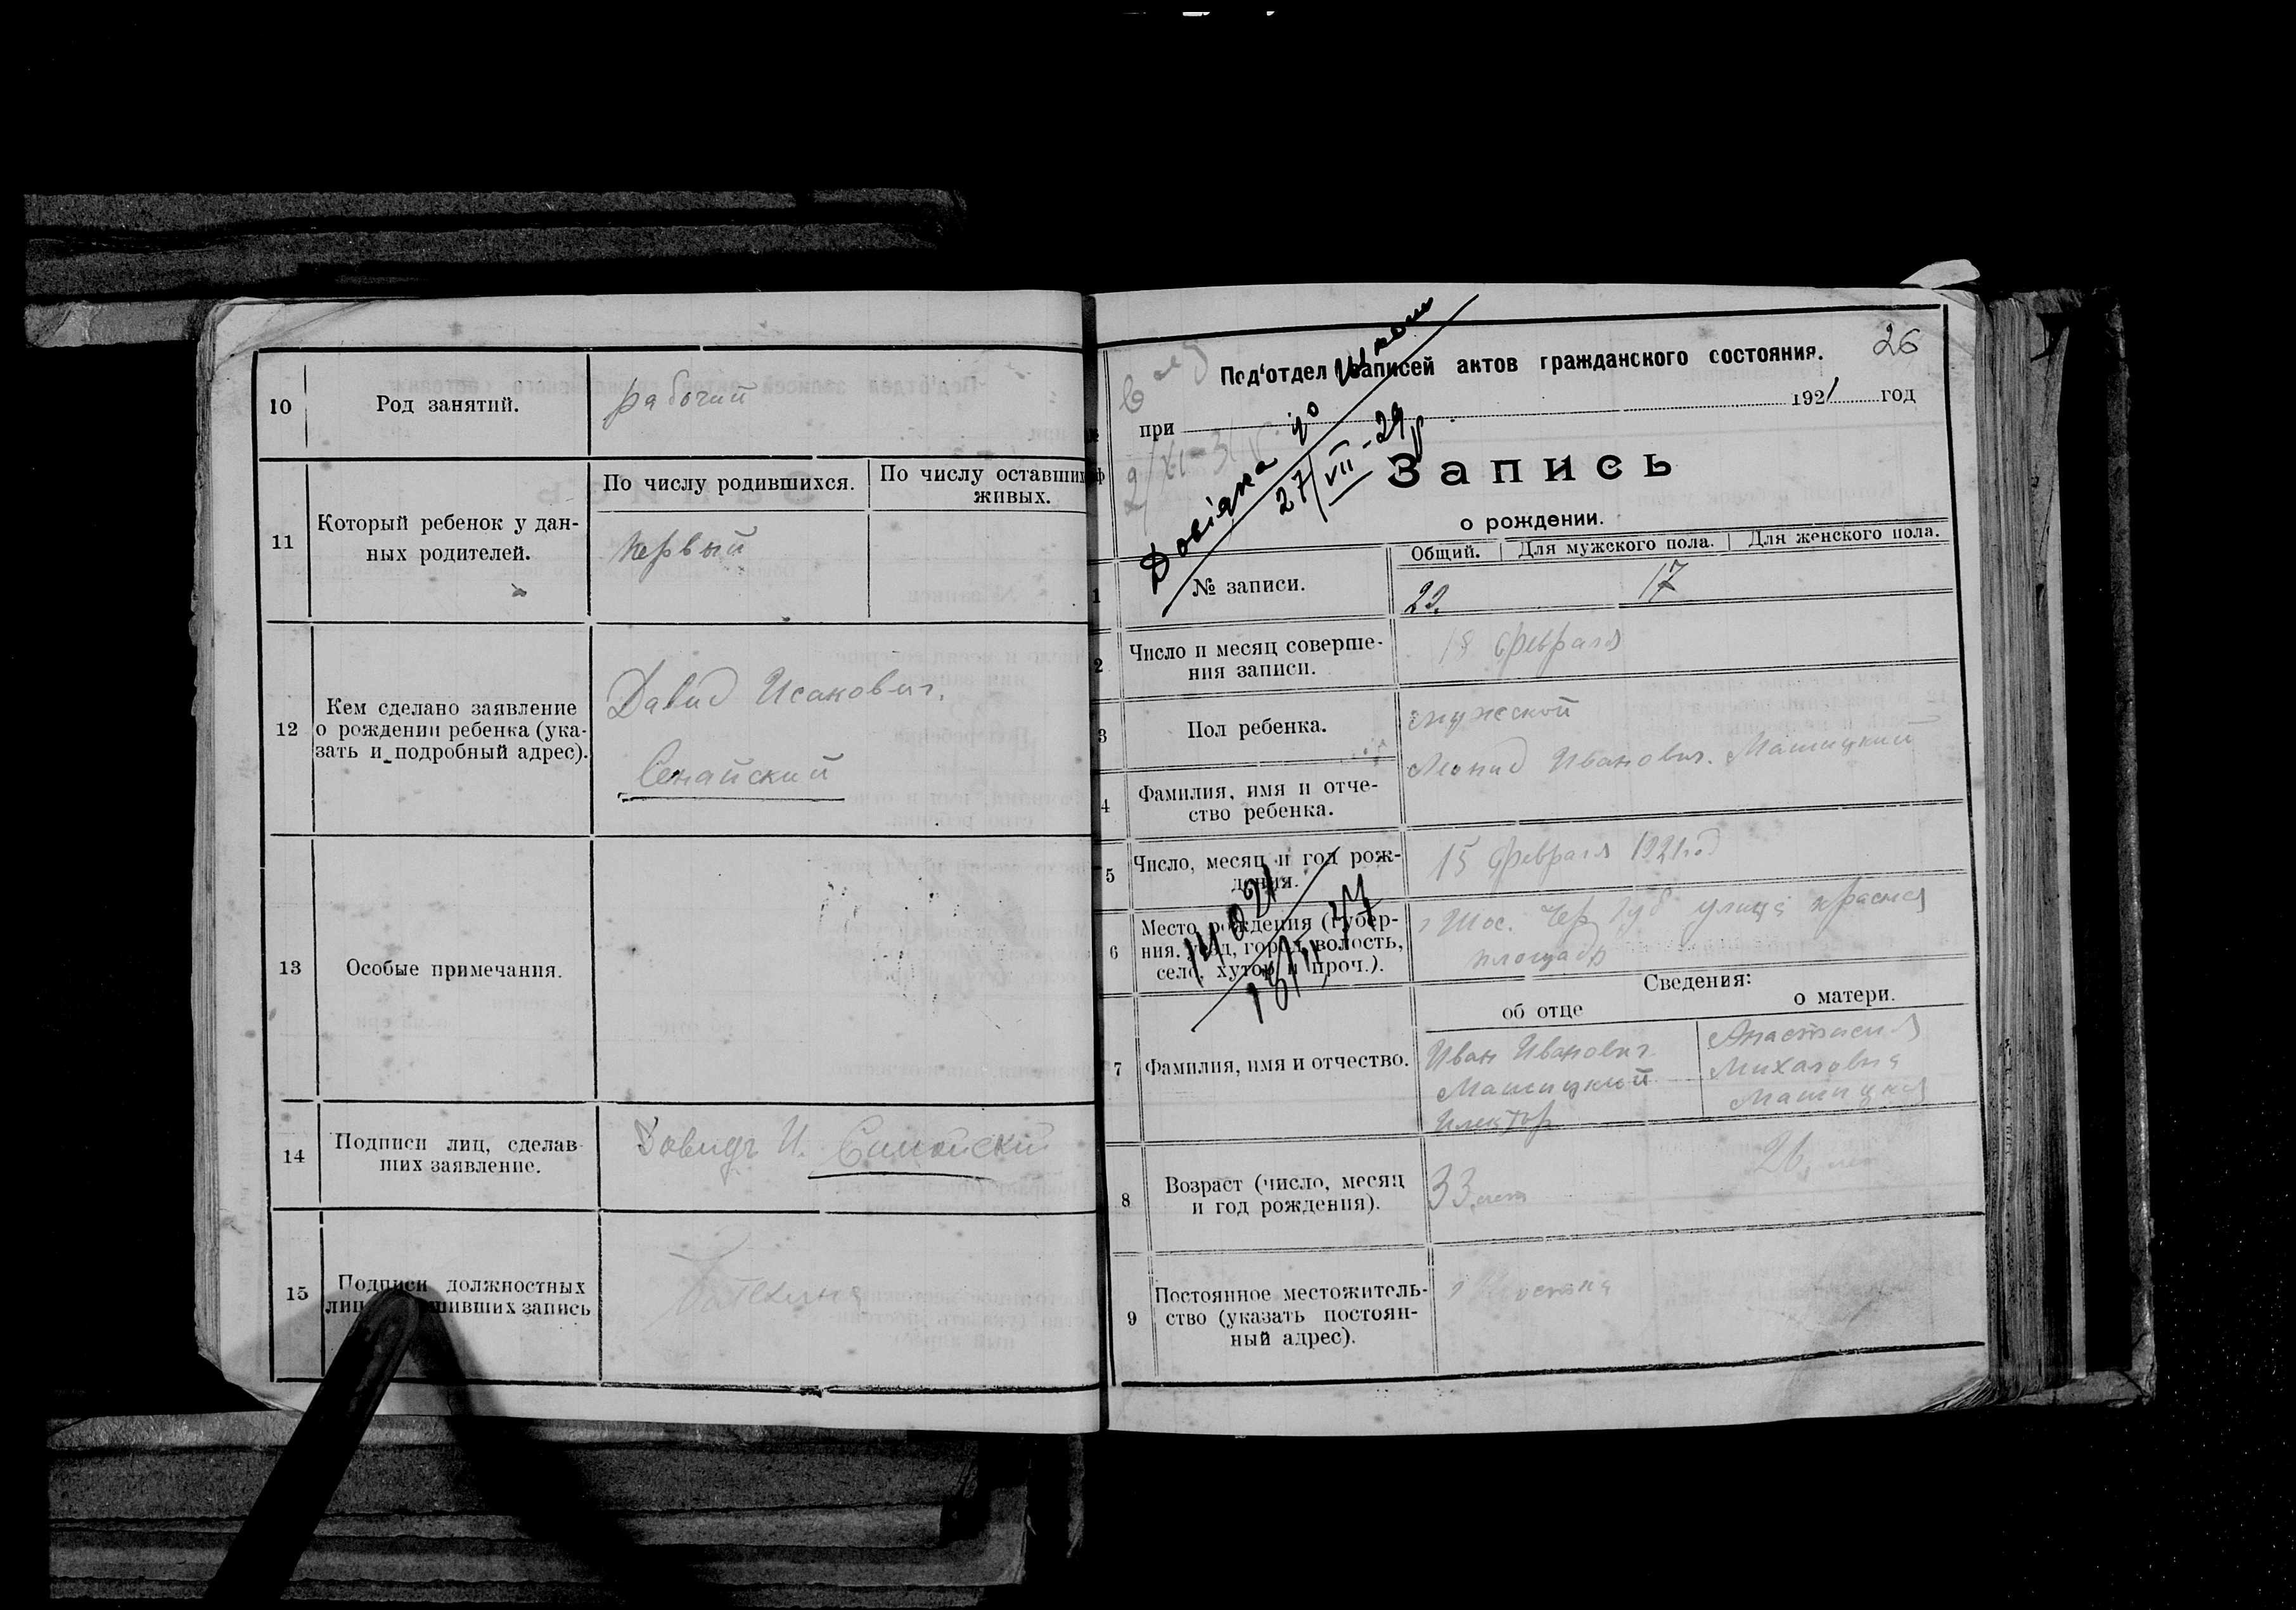 10
Род занятий.
рабочий
11
Который ребенок у дан-
ных родителей.
По числу родившихся.
По числу оставших
живых.
первый
12
Кем сделано заявление
о рождении ребенка (ука-
зать и подробный адрес).
Давид Исакович.
Сенайский
13
Особые примечания.
14
Подписи лиц, сделав-
ших заявление.
Довидъ И.
15
Подписи должностных
лиц, шивших запись
26
Под'отдел записей актов гражданского состояния.
при 1921 год
Довідка
27/VII-29р
Запись
о рождении.
1
№ записи.
Общий. Для мужского пола. Для женского пола.
22. 17
2
Число и месяц соверше-
ния записи.
18 февраля
3
Пол ребенка.
мужской
4
Фамилия, имя и отче-
ство ребенка.
Леонид Иванович. Машицкий
5
Число, месяц и год рож-
дения.
15 февраля 1921 год
6
Место рождения (губер-
ния, уезд, город, волость,
село, хутор и проч.).
г Шос. Чер губ улица красная
площадь
Сведения:
об отце
о матери.
7
Фамилия, имя и отчество.
Иван Иванович
Машицкий
Анастасия
Михаловна
Машицкая
8
Возраст (число, месяц
и год рождения).
33 лет
26 лет
9
Постоянное местожитель-
ство (указать постоян-
ный адрес).
г Шостка